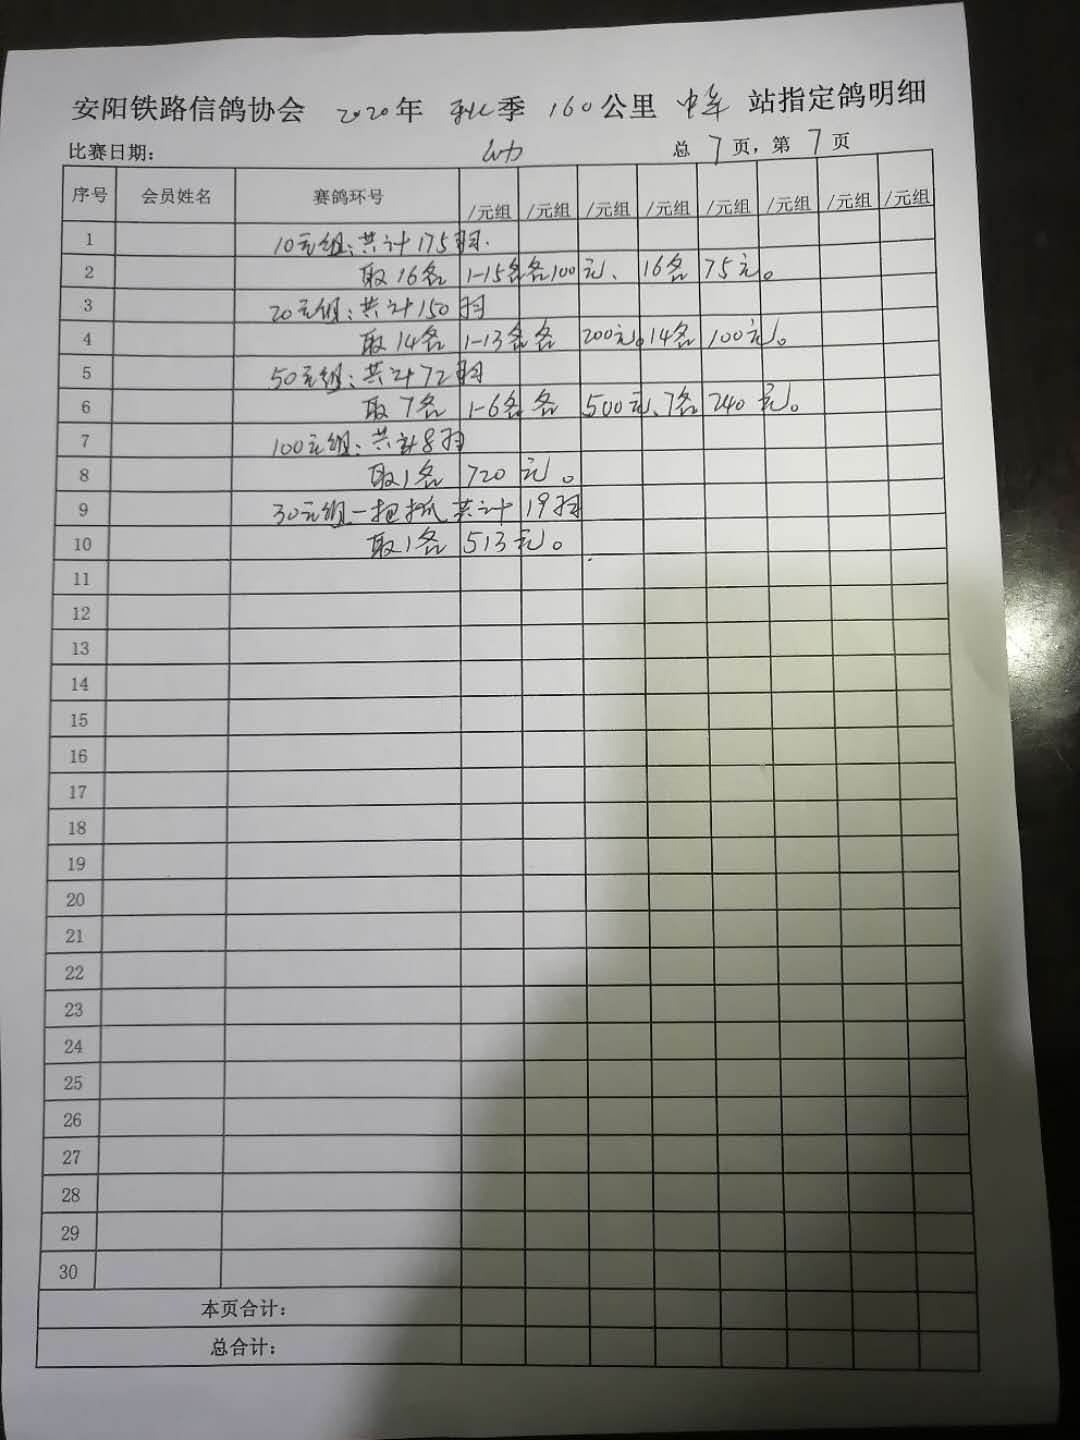 安阳铁路信鸽协会 2020年 秋季 160公里 中牟 站指定鸽明细
比赛日期: 总 7 页，第 7 页
序号 会员姓名 赛鸽环号 /元组 /元组 /元组 /元组 /元组 /元组 /元组 /元组
1 10元组:共计175羽.
2 取16名 1-15名各100元、16名 75元。
3 20元组:共计150羽
4 取14名 1-13名各 200元。14名 100元。
5 50元组:共计72羽
6 取7名 1-6名 各 500元、7名 240元。
7 100元组:共计8羽
8 取1名 720元。
9 30元组一把抓 共计19羽
10 取1名 513元。
11
12
13
14
15
16
17
18
19
20
21
22
23
24
25
26
27
28
29
30
本页合计:
总合计: